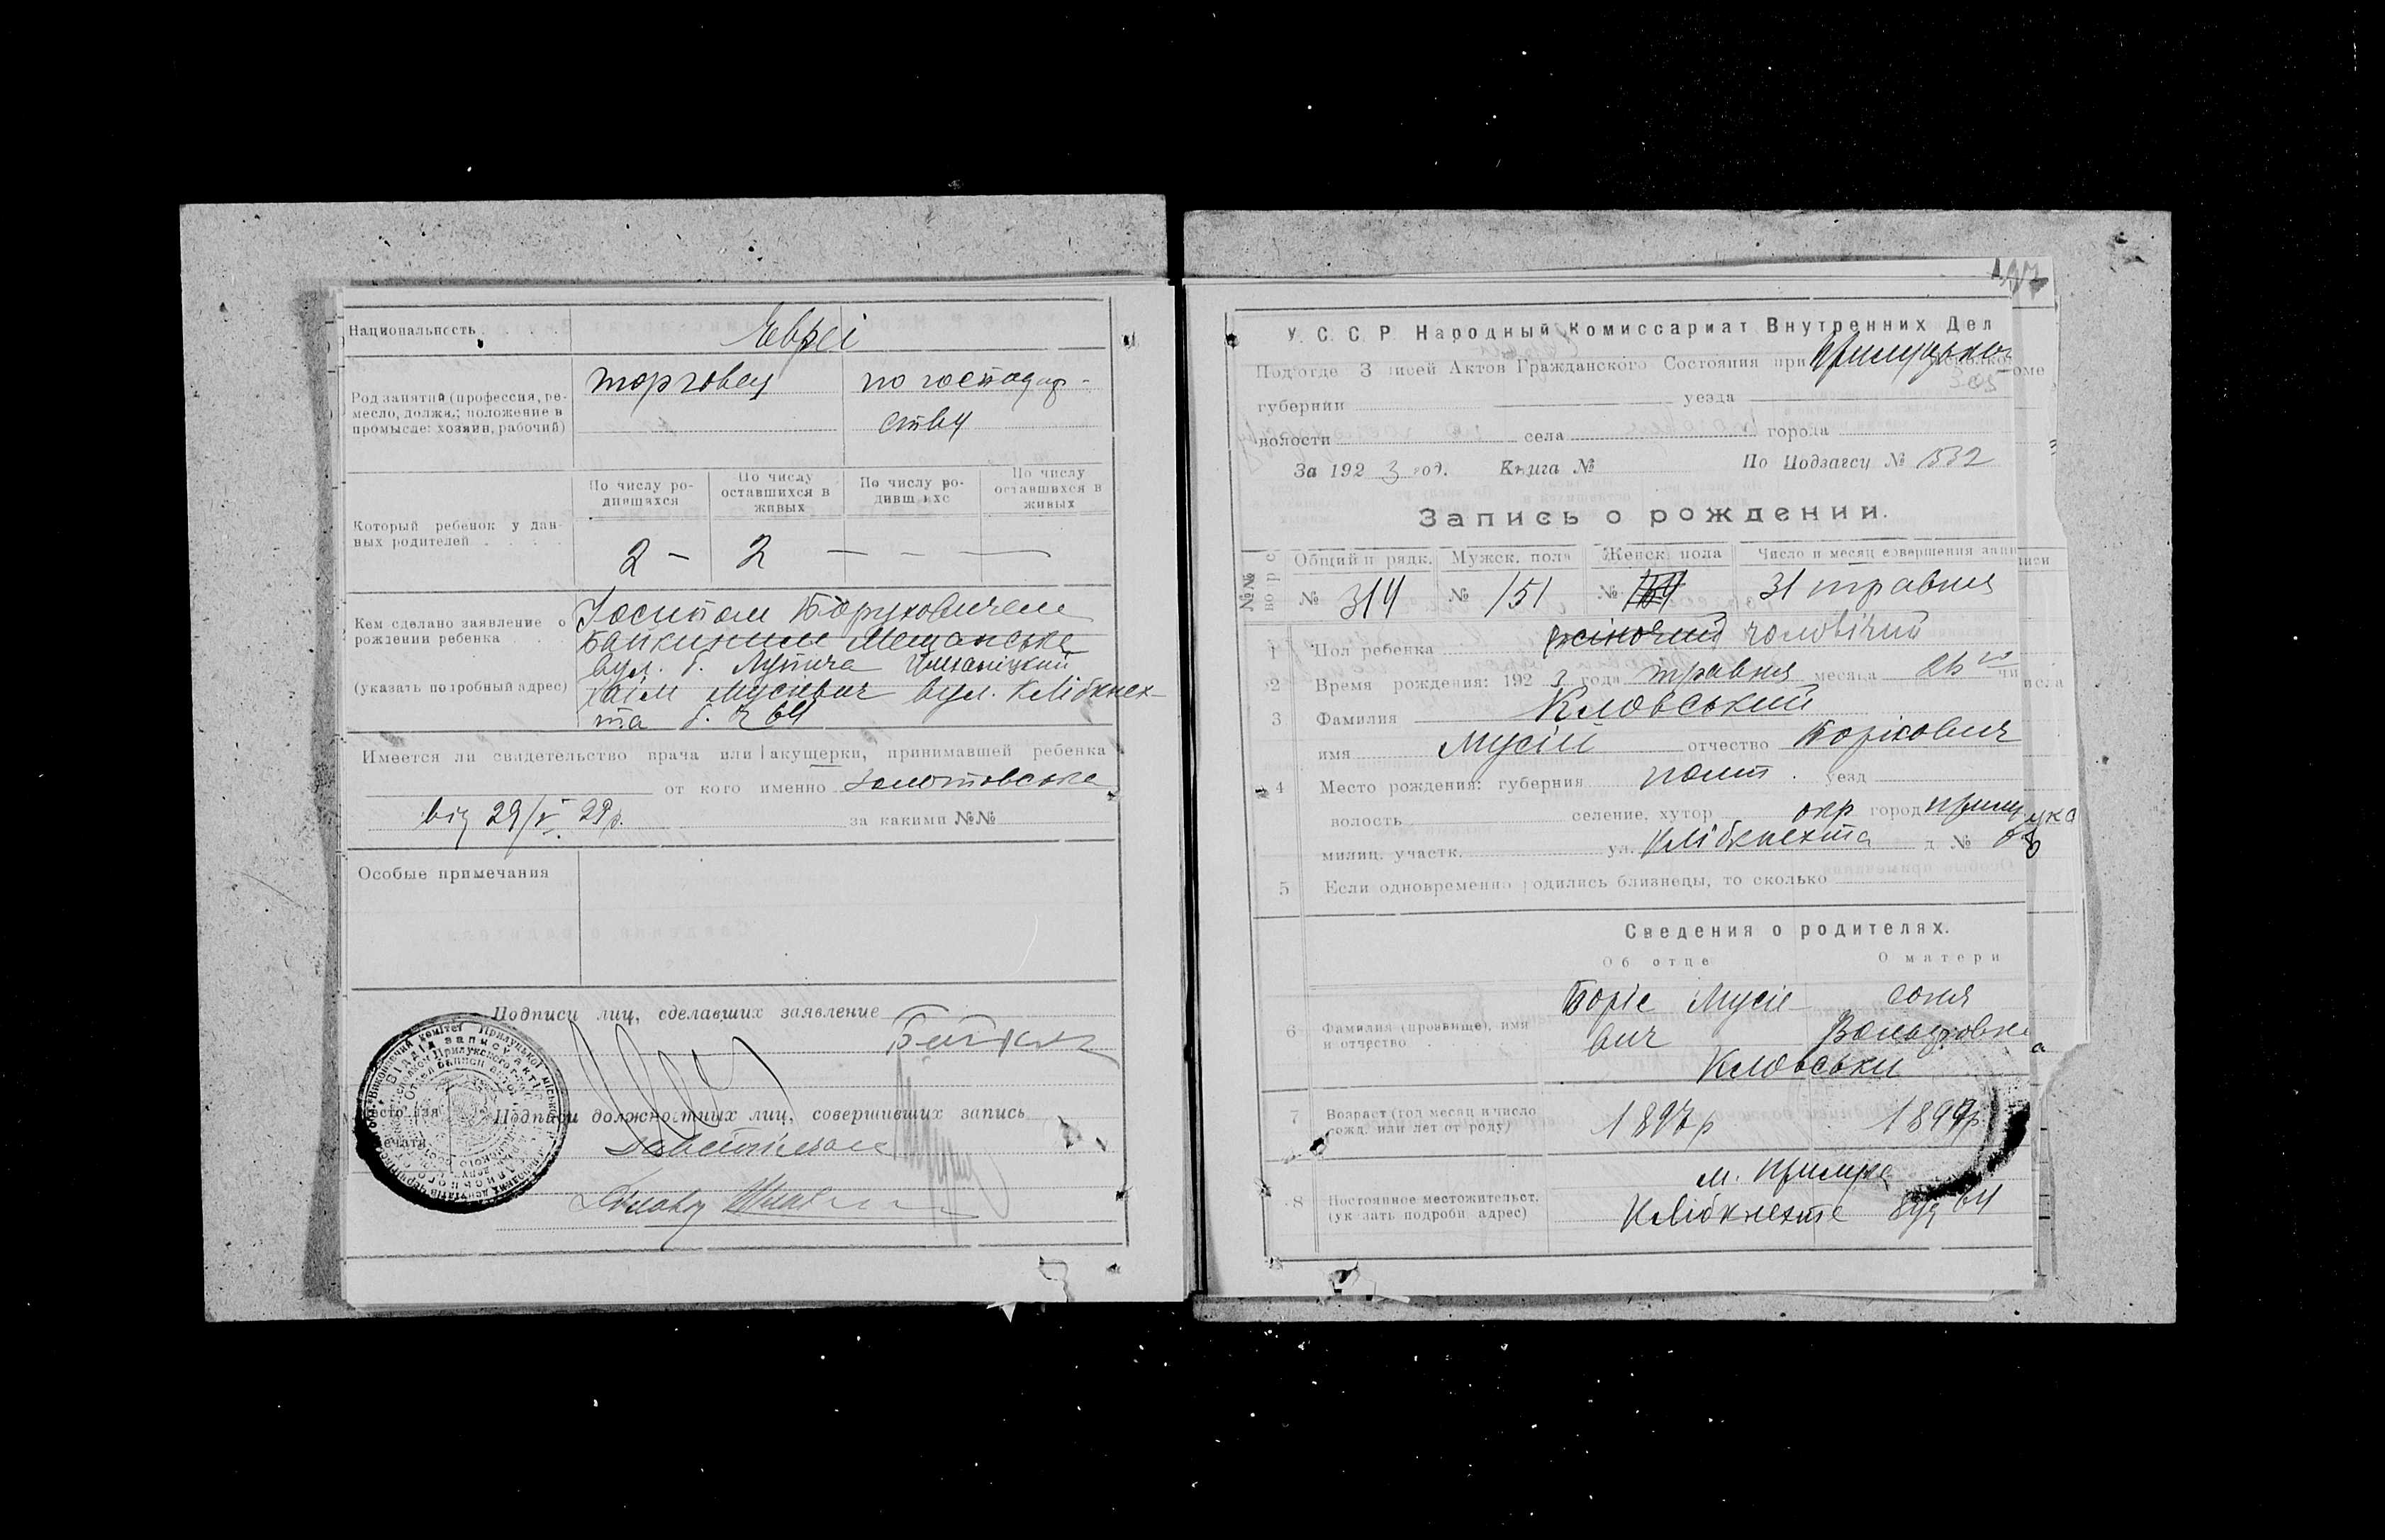 Национальность
Евреї
Род занятий (профессия, ре-
месло, должн.; положение в
промысле: хозяин, рабочий)
торговец
по господар-
ству
Который ребенок у дан-
ных родителей
По числу ро-
дившихся
По числу
оставшихся в
живых
По числу ро-
дивш ихс
По числу
оставшихся в
живых
2 — 2 — — —
Кем сделано заявление о
рождении ребенка
(указать подробный адрес)
Йосипом Боруховичем
Байкиним Мещанська
вул. б.
Хаїм Мусієвич вул. К Лібкнех-
та б. ч 64
Имеется ли свидетельство врача или акушерки, принимавшей ребенка
от кого именно Золотовська
від 29/V 23р. за какими №№
Особые примечания
Подписи лиц, сделавших заявление
Подписи должностных лиц, совершивших запись
197
У. С. С. Р. Народный Комиссариат Внутренних Дел
Подотде З писей Актов Гражданского Состояния при Прилуцьком
губернии уезда
волости села города
За 192 3 год. Книга № По Подзагсу № 1532
Запись о рождении.
Общий п рядк. Мужск. пола Женск. пола Число и месяц совершения записи
№ 314 № 151 № 31 травня
1 Пол ребенка жіночий чоловічий
2 Время рождения: 192 3 года травня месяца 26 го числа
3 Фамилия Кловський
имя Мусій отчество Борісович
4 Место рождения: губерния полт. уезд
волость селение, хутор окр город Прилука
милиц. участк. ул. К Лібкнехта д №
5 Если одновременно родились близнецы, то сколько
Сведения о родителях.
Об отце О матери
6 Фамилия (прозвище), имя
и отчество
Боріс Мусіє-
вич
Соня
Вольфовна
Кловськи
7 Возраст (год месяц и число
рожд. или лет от роду)
1897р 1899р
8 Постоянное местожительст.
(ук зать подробн адрес)
м. Прилука
К Лібкнехте буд 64